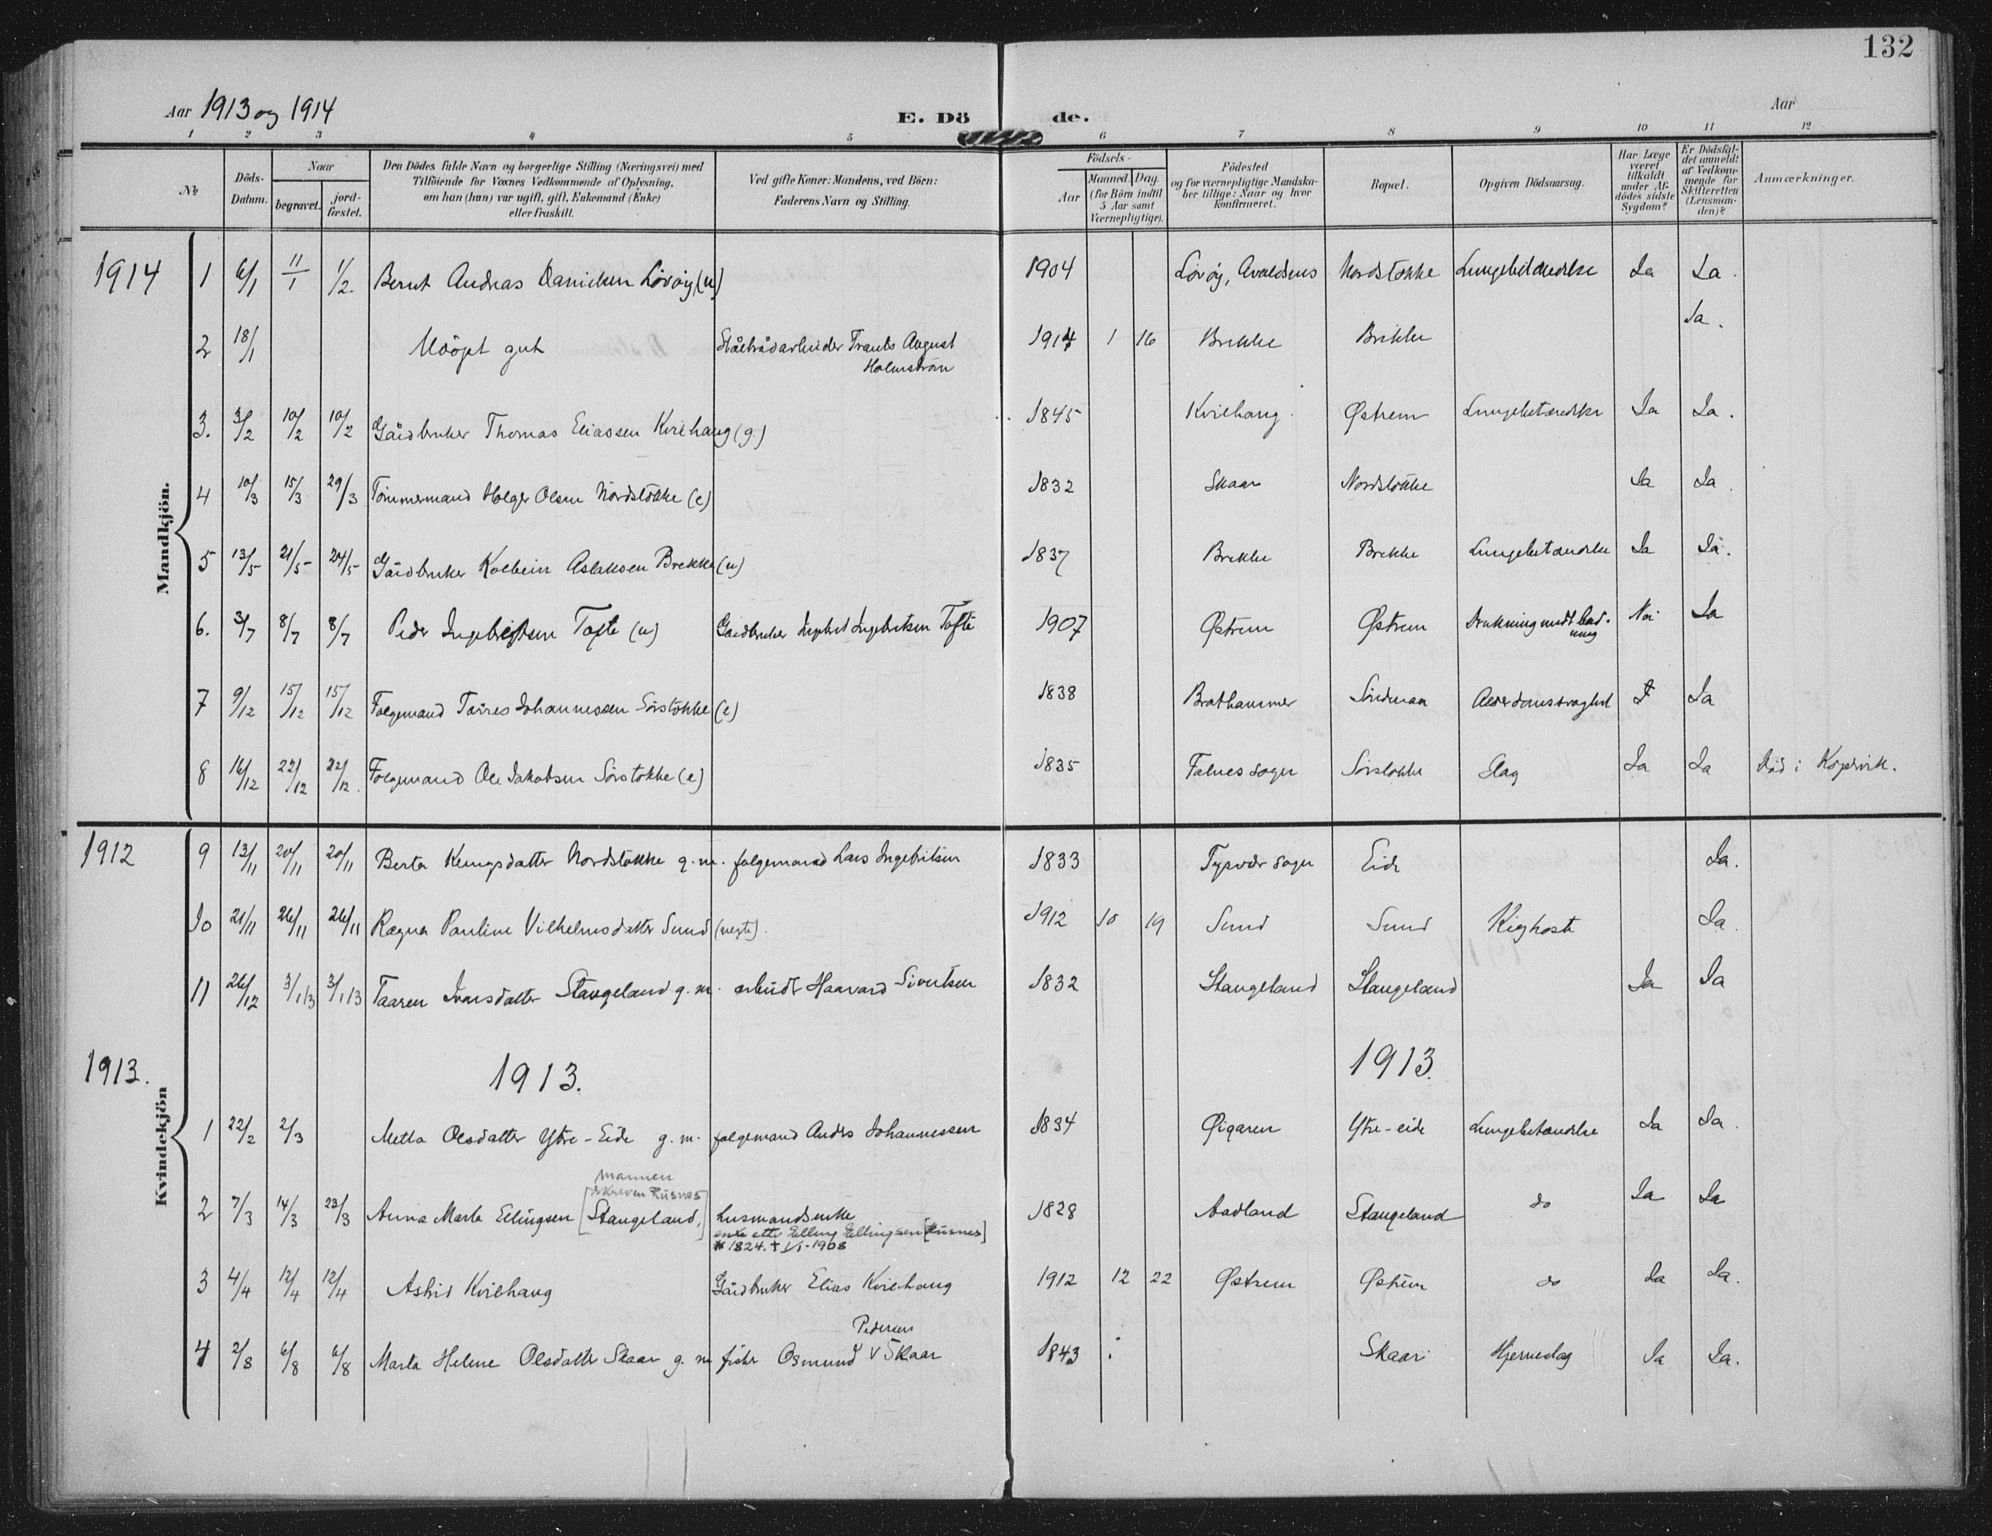 132
Aar 1913 og 1914 E. Dö de. Aar
1 2 3 4 5 6 7 8 9 10 11 12
№ Döds-Datum. Naar begravet. jord-fæstet. Den Dödes fulde Navn og borgerlige Stilling (Næringsvei) med Tilföiende for Voxnes Vedkommende af Oplysning, om han (hun) var ugift, gift, Enkemand (Enke) eller fraskilt. Ved gifte Koner: Mandens, ved Börn: Faderens Navn og Stilling. Födsels- Aar Maaned. Dag. (for Börn indtil 5 Aar samt Værnepligtige). Födested og for værnepligtige Mandska-ber tillige: Naar og hvor konfirmeret. Bopæl. Opgiven Dödsaarsag. Har Læge været tilkaldt under Af-dödes sidste Sygdom? Er Dödsfal-det anmeldt af Vedkom-mende for Skifteretten (Lensman-den)? Anmærkninger.
Mandkjön.
1914 1 6/1 11/1 1/2. Bernt Andreas Danielsen Lövöy (u) 1904 Lövöy, Avaldsnes Nordstokke Lungebetændelse Ja Ja.
2 18/1 Udöpt gut Ståltrådarbeider Frants August Holmström 1914 1 16 Brekke Brekke Ja.
3. 3/2 10/2 10/2 Gårdbruker Thomas Eliassen Kvilhaug (g.) 1845 Kvilhaug. Østrem Lungebetændelse Ja Ja.
4 10/3 15/3 29/3 Tömmermand Holger Olsen Nordstokke (e) 1832 Skaar Nordstokke Ja Ja.
5 13/5 21/5 24/5 Gårdbruker Kolbein Aslaksen Brekke (u) 1837 Brekke Brekke Lungebetændelse Ja Ja.
6. 3/7 8/7 8/7 Peder Ingebrigtsen Tofte (u) Gårdbruker Ingebret Ingebretsen Tofte 1907 Østrem Østrem Drukning under bad-ning Nei Ja
7 9/12 15/12 15/12 Folgemand Torres Johannessen Sörstokke (e) 1838 Brathammer Alderdomssvaghed Ja
8 16/12 22/12 22/12. Folgemand Ole Jakobsen Sörstokke (e) 1835 Falnes sogn Sörstokke Slag Ja Ja Död i Kopervik.
Kvindekjön
1912 9 13/11 20/11 20/11 Berta Nordstokke g. m. folgemand Lars Ingebritsen 1833 Tysvær sogn Eide Ja.
10 21/11 26/11 26/11 Ragna Pauline Vilhelmsdatter Sund (uegte). 1912 10 19 Sund Sund Kighoste Ja.
11 26/12 3/1/13 3/1/13 Taaren Ivarsdatter Stangeland g. m. arbeider Haavard Sivertsen 1832 Stangeland Stangeland Ja Ja
1913. 1913. 1913.
1 22/2 2/3 Metta Olsdatter Ytre-Eide g. m. folgemand Anders Johannessen 1834 Øigaren Ytre-eide Lungebetændelse Ja Ja.
mannen skreven Rusnes
2 7/3 14/3 23/3 Anna Marta Ellingsen [Stangeland,] Husmandsenke 1828 Aadland Stangeland do Ja Ja
enke etter Elling Ellingsen [Rusnes]
* 1824. † 1/1-1908
3 4/4 12/4 12/4 Astrid Kvilhaug Gårdbruker Elias Kvilhaug 1912 12 22 Østrem Østrem do Ja Ja.
Pedersen
4 2/8 6/8 6/8 Marta Helene Olsdatter Skaar g. m fisker Osmund V Skaar 1843 Skaar Hjerneslag Ja Ja.